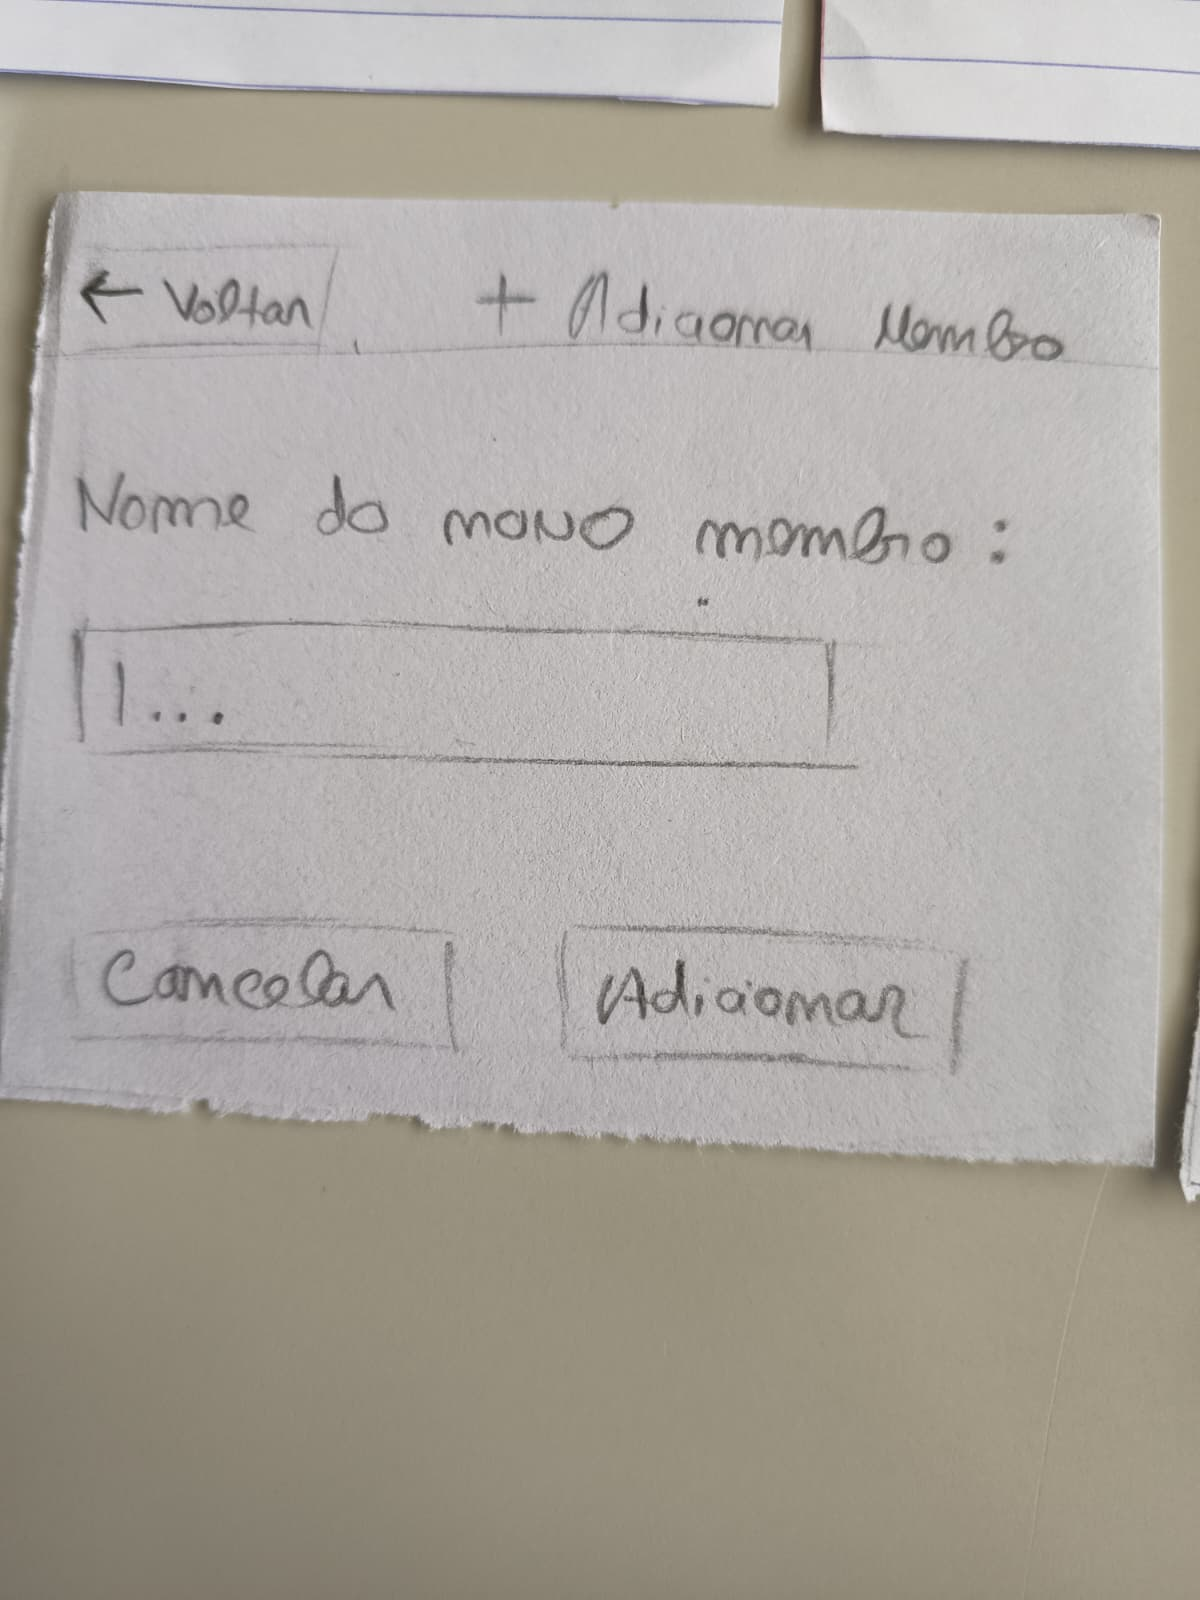 ← Voltar + Adicionar Membro
Nome do novo membro:
|...
Cancelar Adicionar